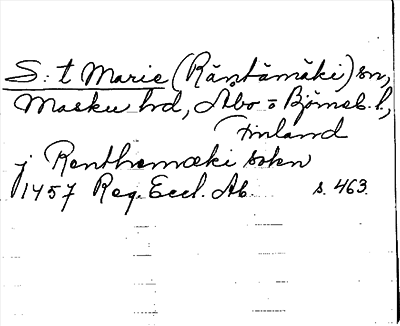 S:t Marie (Räntämäki) sn,
Masku hd, Åbo o Björneb. l.,
Finland
j Renthemæki sokn
1457 Reg. Eccl. Ab. s. 463.